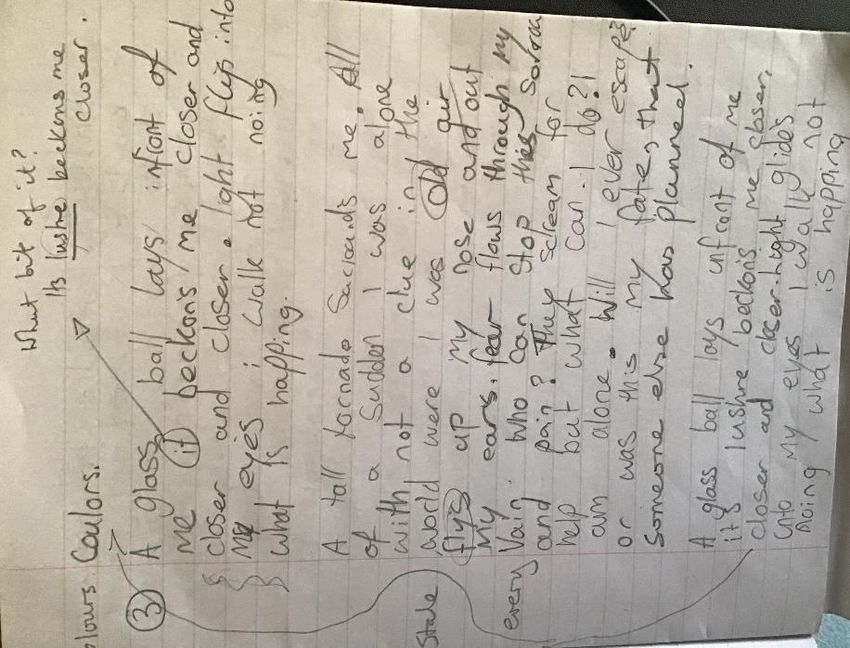 What bit of it?
Its lushre beckons me
closer.
olours Coulors.
3 A glass ball lays infront of
me it beckon's me closer and
closer and closer. light flys into
my eyes i walk not noing
what is happing.
A tall tornado Suraunds me. All
of a sudden I was alone
with not a clue in the
world were I was Old air
Stale
flys up my nose and out
my ears. fear flows through my
every Vain. who can stop this Sorrow
and pain? They scream for
help but what can I do?!
am alone. Will I ever escape?
or was this my fate, that
Someone else has planned.
A glass ball lays infront of me
it's lushre beckon's me closer,
closer and closer. light glides
into my eyes I walk not
noing what is happing